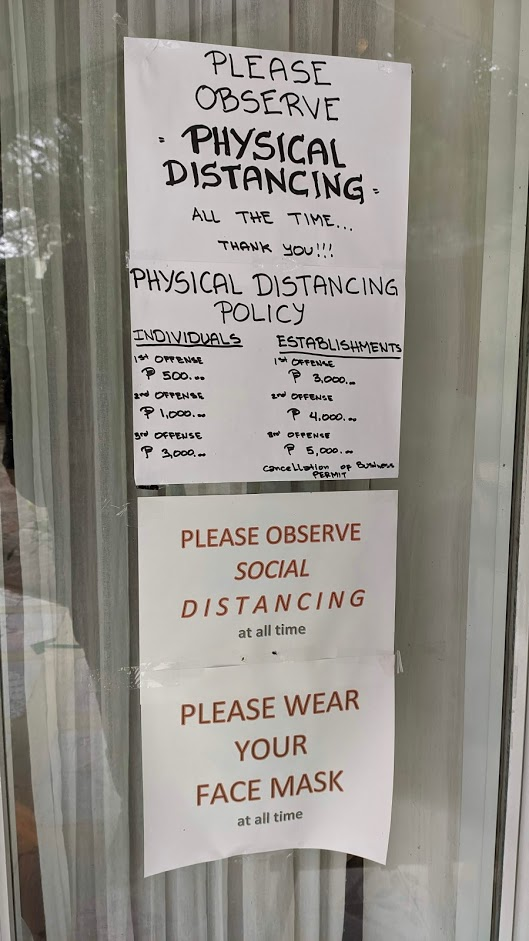 PLEASE
OBSERVE
"PHYSICAL
DISTANCING"
ALL THE TIME...
THANK YOU!!!
PHYSICAL DISTANCING
POLICY
INDIVIDUALS
1st OFFENSE
₱ 500.00
2nd OFFENSE
₱ 1,000.00
3rd OFFENSE
₱ 3,000.00
ESTABLISHMENTS
1st OFFENSE
₱ 3,000.00
2nd OFFENSE
₱ 4,000.00
3rd OFFENSE
₱ 5,000.00
Cancellation of Business
PERMIT
PLEASE OBSERVE
SOCIAL
DISTANCING
at all time
PLEASE WEAR
YOUR
FACE MASK
at all time